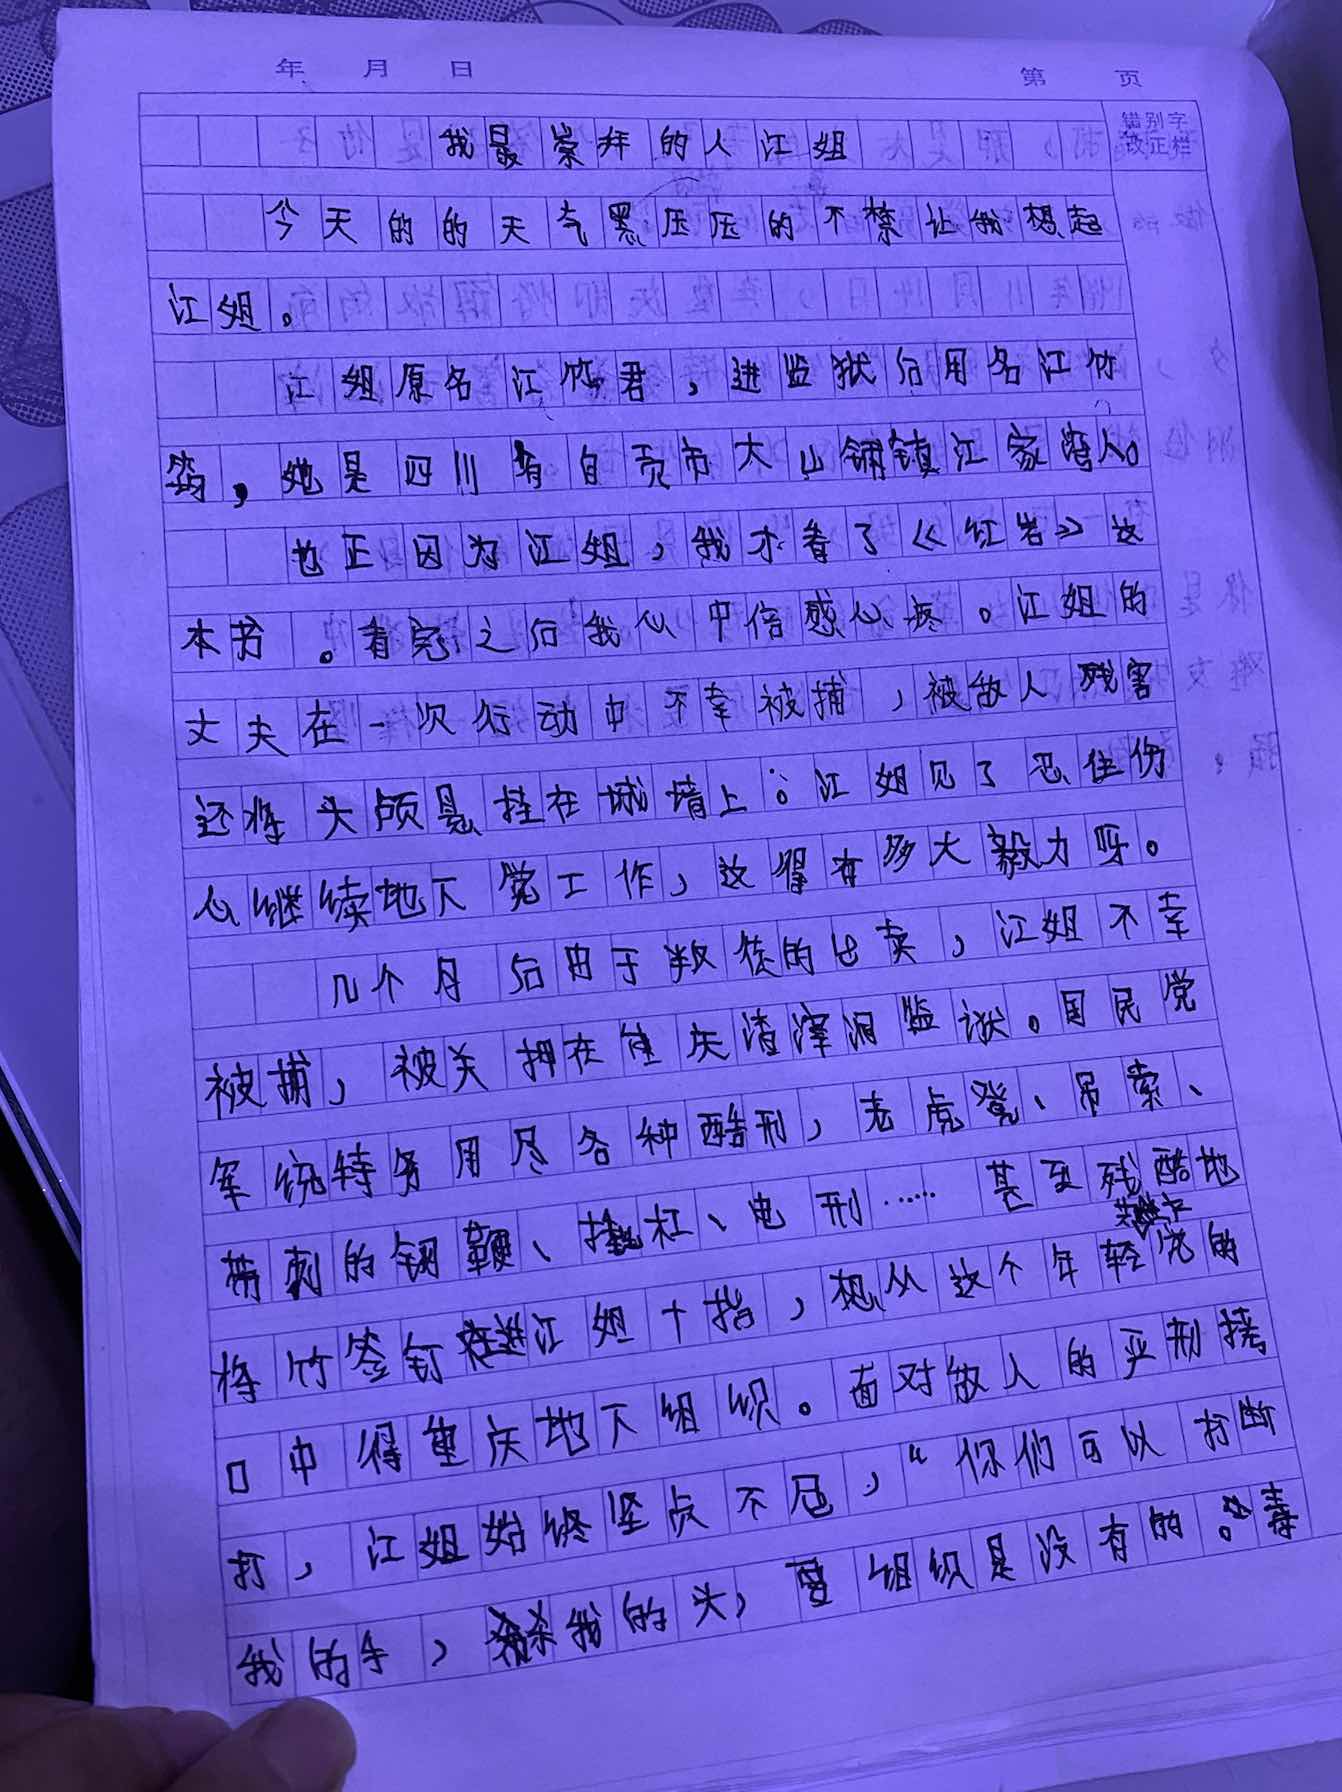 年 月 日 第 页
错别字
改正栏
我最崇拜的人江姐
今天的的天气黑压压的不禁让我想起
江姐。
江姐原名江竹君，进监狱后用名江竹
筠，她是四川省自贡市大山铺镇江家湾人。
也正因为江姐，我才看了《红岩》这
本书。看完之后我心中倍感心疼。江姐的
丈夫在一次行动中不幸被捕，被敌人残害
还将头颅悬挂在城墙上。江姐见了忍住伤
心继续地下党工作，这得有多大毅力呀。
几个月后由于叛徒的出卖，江姐不幸
被捕，被关押在重庆渣滓洞监狱。国民党
军统特务用尽各种酷刑，老虎凳、吊索、
带刺的钢鞭、撬杠、电刑……甚至残酷地
将竹签钉进江姐十指，想从这个年轻党的
口中得重庆地下组织。面对敌人的严刑拷
打，江姐始终坚贞不屈，“你们可以打断
我的手，杀我的头，要组织是没有的。”毒